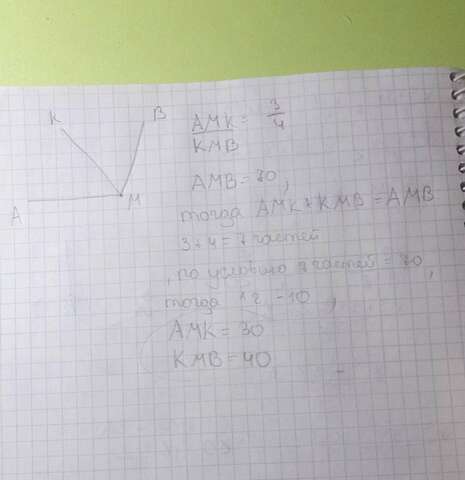 K
B
A
M
AMK/KMB = 3/4
AMB = 70,
тогда AMK + KMB = AMB
3 + 4 = 7 частей
, по условию 7 частей = 70,
тогда 1ч - 10,
AMK = 30
KMB = 40